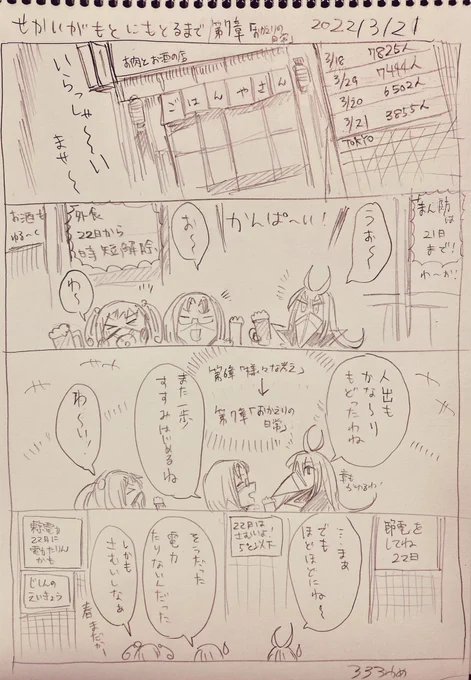 せかいがもとにもどるまで「第7章「おかえりの日常」
2022/3/21
3/18 7825人
3/29 7444人
3/20 6502人
3/21 3855人
TOKYO
お肉とお酒の店
ごはんやさん
いらっしゃ〜〜い
ませ〜
まん防は
21日
まで!
わ〜お!
うぉ〜
かんぱ〜い!
お〜
外食
22日から
時短解除
わ〜
お酒も
ゆる〜く
人出も
かな〜り
もどったわね
第6章「様々な光と」
↓
第7章「おかえりの
日常」
また一歩
すすみはじめるね
わ〜い!
節電を
してね
22日
…まぁ
でも
ほどほどにね〜
22日は
さむいよ!
5℃以下
そうだった
電力
たりないんだった
しかも
さむいしなぁ
春まだか
22日に
電力たりん
かも
じしんの
えいきょう
333かめ